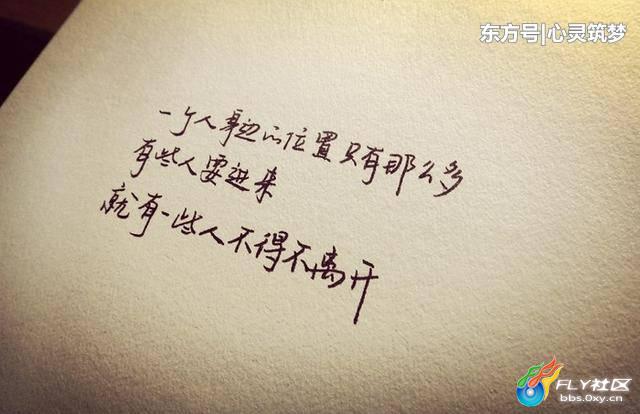 东方号|心灵筑梦
一个人身边的位置只有那么多
有些人要进来
就有一些人不得不离开
FLY社区
bbs.0xy.cn